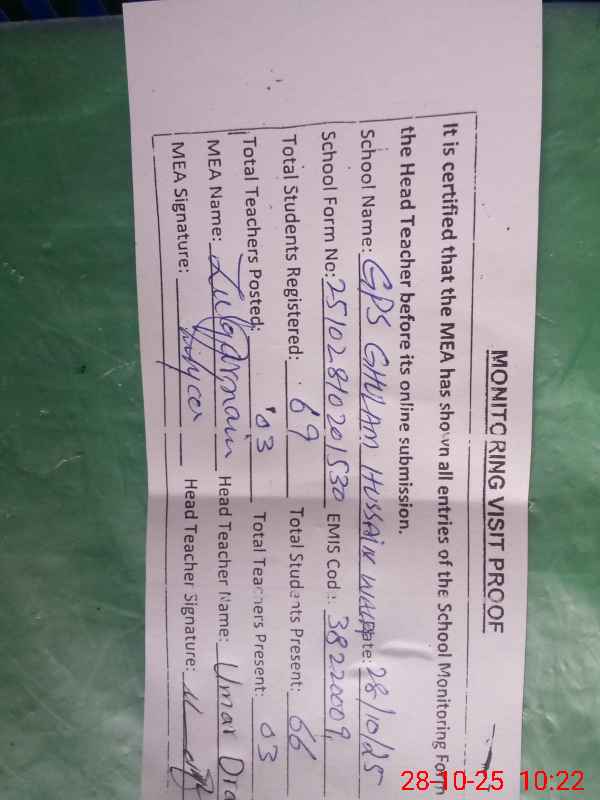 MONITORING VISIT PROOF
It is certified that the MEA has shown all entries of the School Monitoring Form
the Head Teacher before its online submission.
School Name: GPS GHULAM HUSSAIN Date: 28/10/25
School Form No: 25102810201530 EMIS Code: 38220009
Total Students Registered: 69 Total Students Present: 66
Total Teachers Posted: 03 Total Teachers Present: 03
MEA Name: Head Teacher Name: Umar
MEA Signature: Head Teacher Signature:
28-10-25 10:22